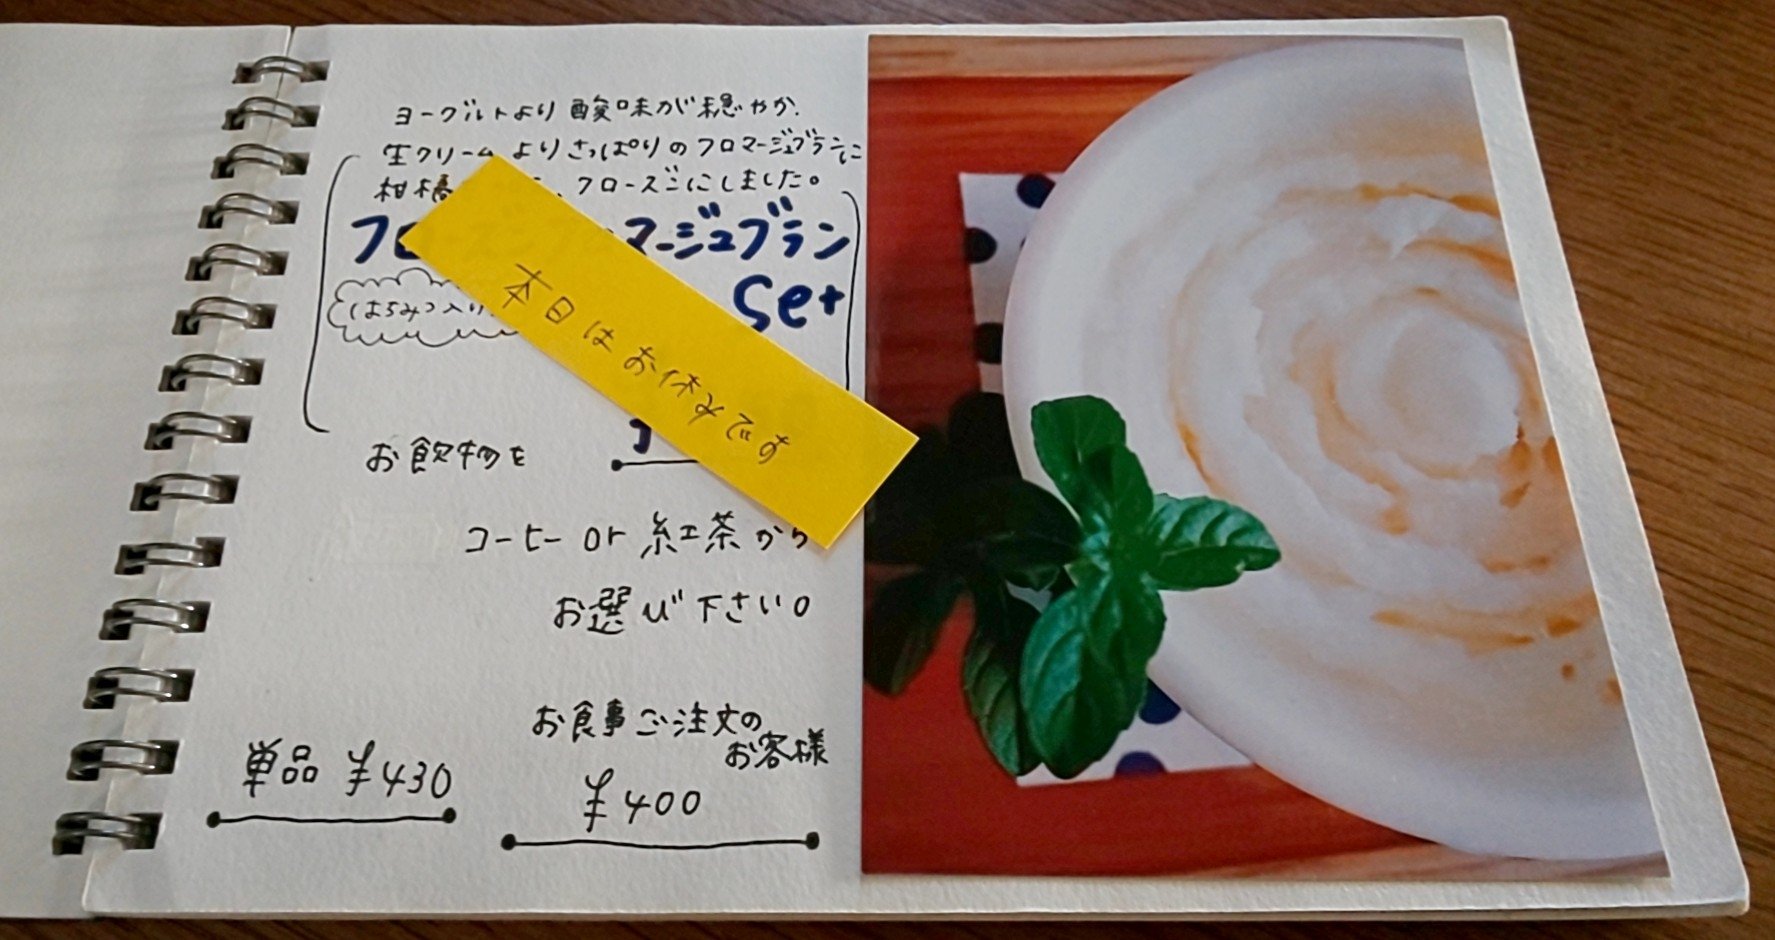 ヨーグルトより酸味が穏やか、
生クリームよりさっぱりのフロマージュブランに
柑橘 、フローズンにしました。
フロ マージュブラン
Set
はちみつ入り
本日はお休みです
お飲物を
コーヒー or 紅茶から
お選び下さい。
お食事ご注文の
お客様
単品 ¥430
¥400